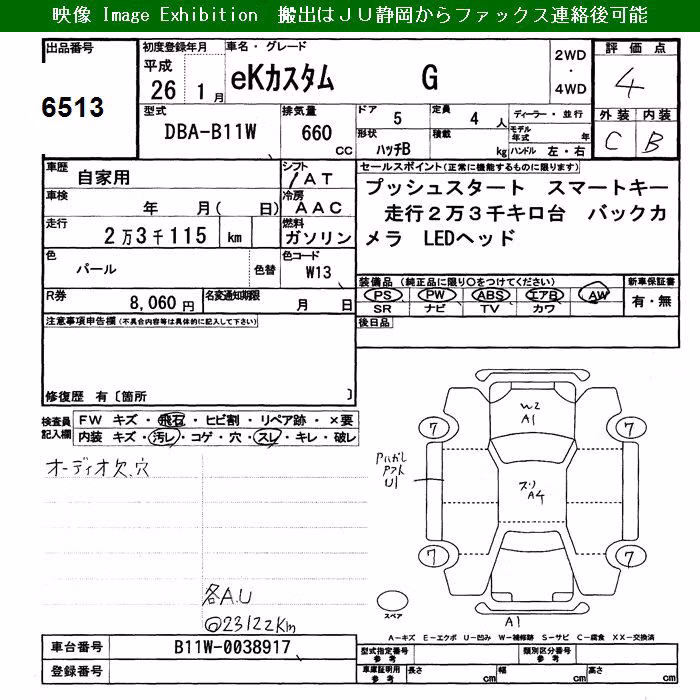 映像 Image Exhibition 搬出はJU静岡からファックス連絡後可能
出品番号
6513
初度登録年月
平成
26 1月
車名・グレード
eKカスタム G
2WD
・
4WD
評価点
4
型式
DBA-B11W
排気量
660 cc
ドア 5
定員 4 人
ディーラー・並行
形状 ハッチB
積載 kg
モデル年式 年
ハンドル 左・右
外装 内装
C B
車歴 自家用
シフト
/AT
車検 年 月( 日)
冷房
AAC
走行
2万3千115 km
燃料
ガソリン
色
パール 色替
色コード
W13
R券 8,060円
名変通知期限 月 日
セールスポイント(正常に機能するものに限ります)
プッシュスタート スマートキー
走行2万3千キロ台 バックカ
メラ LEDヘッド
装備品 (純正品に限り○をつけてください)
PS PW ABS エアB AW
SR ナビ TV カワ
新車保証書
有・無
後日品
注意事項申告欄(不具合内容等は具体的に記入して下さい)
修復歴 有〔箇所 〕
検査員記入欄
FW キズ・飛石・ヒビ割・リペア跡・×要
内装 キズ・汚レ・コゲ・穴・スレ・キレ・破レ
オーディオ欠、穴
各A.U
@23122Km
W2
A1
7 7
アハガレ
U1
A4
7 7
スペア
A1
A-キズ E-エクボ U-凹み W-補修跡 S-サビ C-腐食 XX-交換済
車台番号 B11W-0038917
登録番号
型式指定番号
参考
類別区分番号
参考
車庫証明用
参考
長さ cm 幅 cm 高さ cm